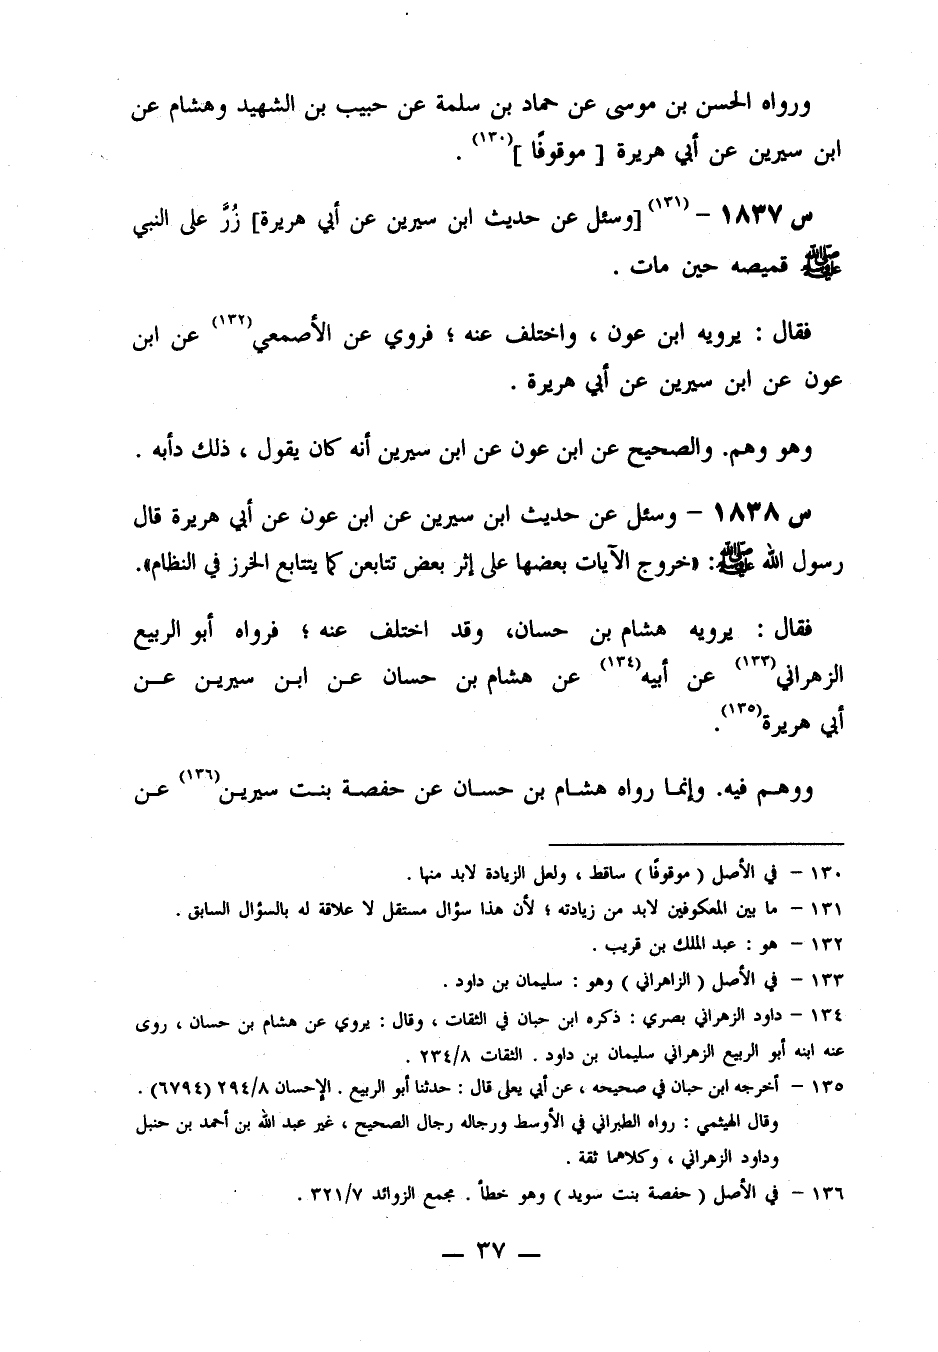 ورواه الحسن بن موسى عن حماد بن سلمة عن حبيب بن الشهيد وهشام عن
ابن سيرين عن أبي هريرة [ موقوفًا ](١٣٠) .
س ١٨٣٧ - (١٣١)[وسئل عن حديث ابن سيرين عن أبي هريرة] زُرَّ على النبي
ﷺ قميصه حين مات .
فقال : يرويه ابن عون ، واختلف عنه ؛ فروي عن الأصمعي(١٣٢) عن ابن
عون عن ابن سيرين عن أبي هريرة .
وهو وهم. والصحيح عن ابن عون عن ابن سيرين أنه كان يقول ، ذلك دأبه .
س ١٨٣٨ - وسئل عن حديث ابن سيرين عن ابن عون عن أبي هريرة قال
رسول الله ﷺ: «خروج الآيات بعضها على إثر بعض تتابعن كما يتتابع الخرز في النظام».
فقال : يرويه هشام بن حسان، وقد اختلف عنه ؛ فرواه أبو الربيع
الزهراني(١٣٣) عن أبيه(١٣٤) عن هشام بن حسان عن ابن سيرين عن
أبي هريرة(١٣٥).
ووهم فيه. وإنما رواه هشام بن حسان عن حفصة بنت سيرين(١٣٦) عن
١٣٠ - في الأصل ( موقوفًا ) ساقط ، ولعل الزيادة لابد منها .
١٣١ - ما بين المعكوفين لابد من زيادته ؛ لأن هذا سؤال مستقل لا علاقة له بالسؤال السابق .
١٣٢ - هو : عبد الملك بن قريب .
١٣٣ - في الأصل ( الزاهراني ) وهو : سليمان بن داود .
١٣٤ - داود الزهراني بصري : ذكره ابن حبان في الثقات ، وقال : يروي عن هشام بن حسان ، روى
عنه ابنه أبو الربيع الزهراني سليمان بن داود . الثقات ٢٣٤/٨ .
١٣٥ - أخرجه ابن حبان في صحيحه ، عن أبي يعلى قال : حدثنا أبو الربيع . الإحسان ٢٩٤/٨ (٦٧٩٤) .
وقال الهيثمي : رواه الطبراني في الأوسط ورجاله رجال الصحيح ، غير عبد الله بن أحمد بن حنبل
وداود الزهراني ، وكلاهما ثقة .
١٣٦ - في الأصل ( حفصة بنت سويد ) وهو خطأ . مجمع الزوائد ٣٢١/٧ .
— ٣٧ —